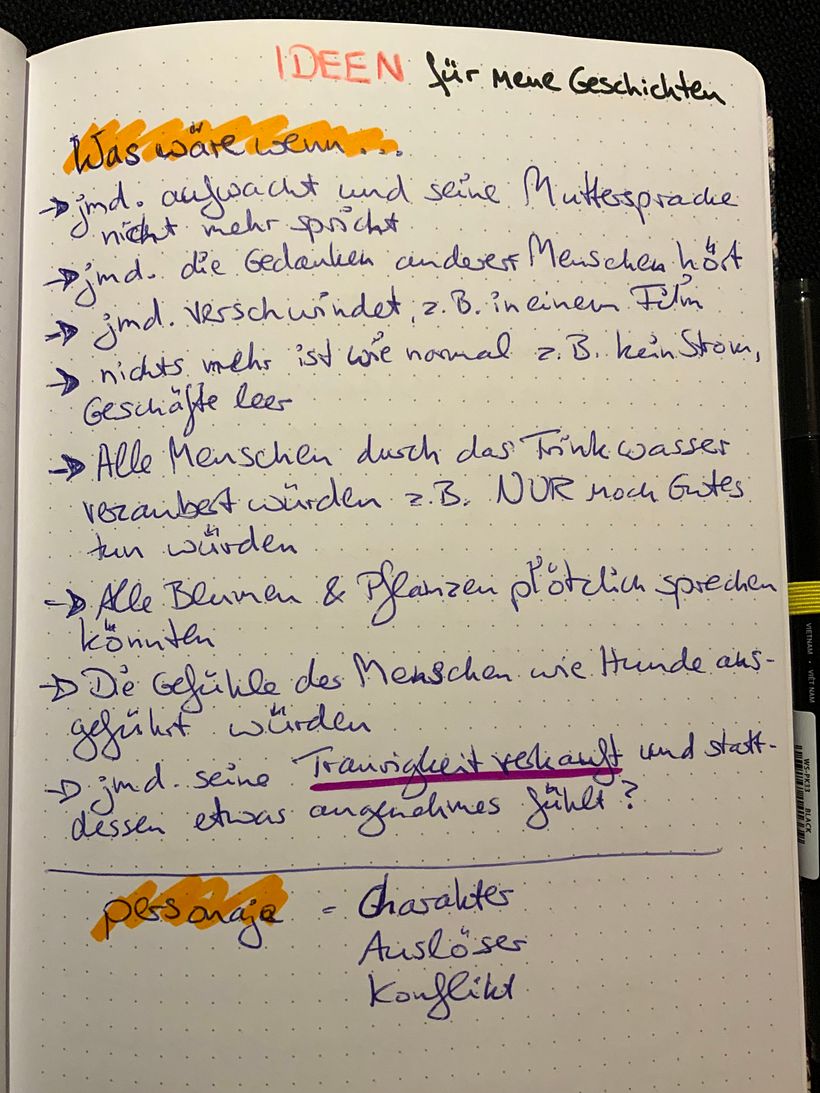 IDEEN für meine Geschichten
Was wäre wenn...
→ jmd. aufwacht und seine Muttersprache
nicht mehr spricht
→ jmd. die Gedanken anderer Menschen hört
→ jmd. verschwindet, z.B. in einem Film
→ nichts mehr ist wie normal z.B. kein Strom,
Geschäfte leer
→ Alle Menschen durch das Trinkwasser
verzaubert würden z.B. NUR noch Gutes
tun würden
→ Alle Blumen & Pflanzen plötzlich sprechen
könnten
→ Die Gefühle des Menschen wie Hunde aus-
geführt würden
→ jmd. seine Traurigkeit verkauft und statt-
dessen etwas angenehmes fühlt?
personaje = Charakter
Auslöser
Konflikt
VIETNAM • VIỆT NAM
WS-PK13 BLACK